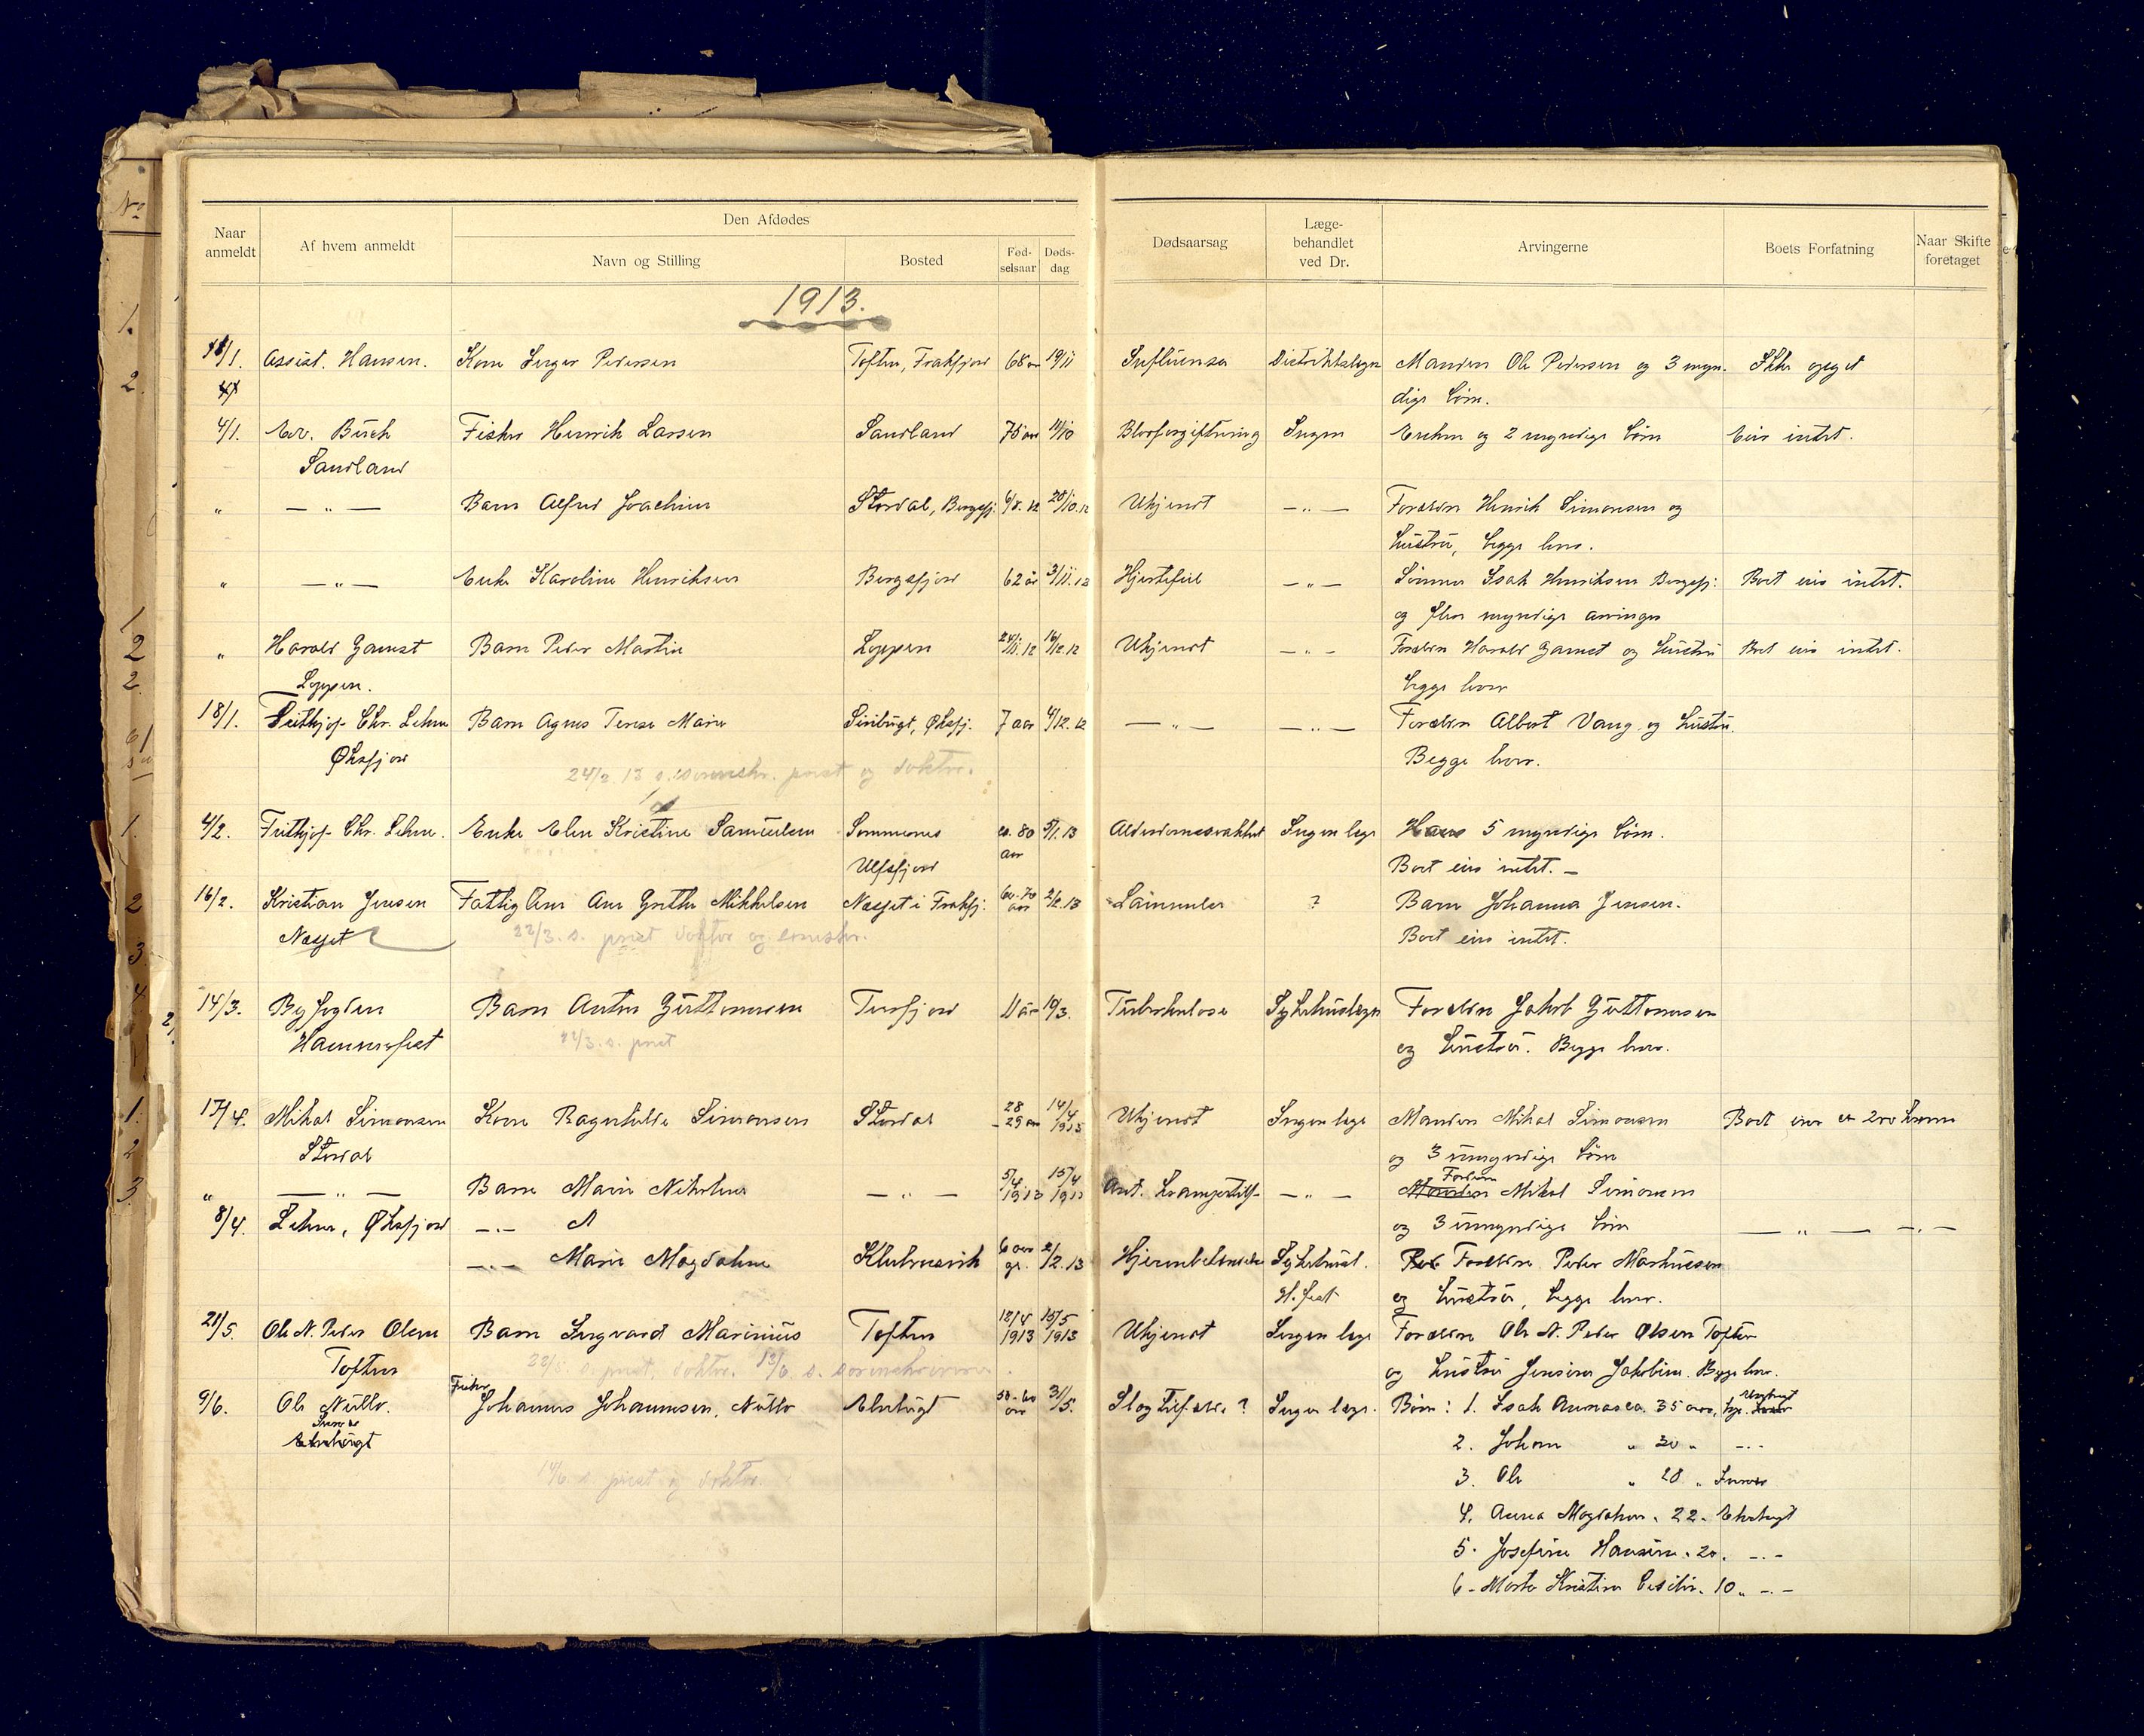 Naar anmeldt
Af hvem anmeldt
Den Afdødes
Navn og Stilling
Bosted
Fød- selsaar
Døds- dag
Dødsaarsag
Læge- behandlet ved Dr.
Arvingerne
Boets Forfatning
Naar Skifte foretaget
1913.
/1. Assist. Hansen. Kone Inger Pedersen Toften, Frakfjord 68 aar 19/11 Influensa Distriktslægen Manden Ole Pedersen og 3 myn- Ikke opgit
dige børn.
4/1. Edv. Buch Fisker Henrik Larsen Sandland 75 aar 11/10 Blodforgiftning Ingen Enken og 2 myndige børn Eier intet.
Sandland
" — " — Barn Alfred Joachim Stordal, Bergsfj. 6/8. 12 20/10.12 Ukjendt — " — Forældre Henrik Simonsen og
hustru, begge lever.
" — " — Enke Karoline Henriksen Bergsfjord 62 år 3/11.12 Hjertefeil — " — Sønnen Isak Henriksen Bergsfj. Boet eier intet.
og flere myndige arvinger
" Harald Gamst Barn Peder Martin Loppen 24/11.12 16/12.12 Ukjendt — " — Forældre Harald Gamst og hustru Boet eier intet.
Loppen. begge lever
18/1. Frithjof Chr. Lehne Barn Agnes Terese Marie Simbugt, Øksfj. 7 aar 4/12.12 — " — — " — Forældre Albert Vang og hustru.
Øksfjord Begge lever.
24/2. 13 s. sorenskr. prest og doktor.
4/2. Frithjof Chr. Lehne. Enke Elen Kristine Samuelsen Sommernes ca. 80 5/1.13 Alderdomssvakhet Ingen læge Have 5 myndige børn.
aar
Ulfsfjord Boet eier intet. —
16/2. Kristian Jensen Fattiglem Ane Grethe Mikkelsen Næsset i Frakfj. 60-70 aar 2/2.13 ? Barn Johanna Jensen.
Næsset 22/3. s. prest doktor og sorenskr. Boet eier intet.
14/3. Byfogden Barn Anton Guttormsen Tusfjord 11 år 10/3. Tuberkulose Sykehuslægen Forældre Jakob Guttormsen
Hammerfest 22/3. s. prest og hustru. Begge lever.
17/4. Mikal Simonsen Kone Ragnhilde Simonsen Stordal 28 - 29 aar 14/4 1913 Ukjendt Ingen læge Manden Mikal Simonsen Boet eier ca 200 kroner
Stordal og 3 umyndige børn
" — " — Barn Marie Nikoline — " — 5/4. 1913 15/4 1913 Ant. krampetilf. — " — Manden Mikal Simonsen
8/4. Lehne, Øksfjord — " — og 3 umyndige børn — " — — " —
— " — Marie Magdalene Klubnesvik 6 aar gl. 2/2.13 Hjernebetændelse Sykehusl. Forældre Peder Markussen
H.fest og hustru, begge lever.
21/5. Ole N. Peder Olsen Barn Ingvard Marinius Toften 12/4 1913 15/5 1913 Ukjendt Ingen læge Forældre Ole N. Peder Olsen Toften
Toften 22/5. s. prest, doktor. 13/6. s. sorenskriveren og hustru Jensine Jakobine. Begge lever.
9/6. Ole Nullo. Fisker Johannes Johannesen, Nullo 50-60 aar 31/5. Slagtilfælde? Ingen læge. Børn: 1. Isak 35 aar,
14/6. s. prest og doktor.
2. Johan " 30 " — " —
3. Ole " 28 "
4. Anna Magdalene " 22 "
5. Josefine Hansine " 20 " — " —
6 - Marte Kristine " 10 " — " —